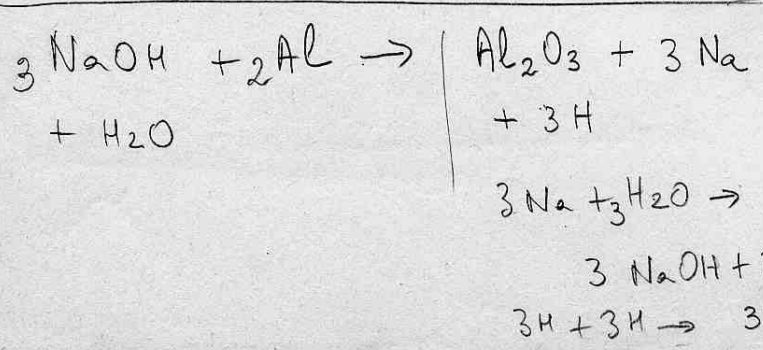 3 NaOH + 2 Al → | Al2O3 + 3 Na
+ H2O + 3 H
3 Na + 3 H2O →
3 NaOH +
3H + 3H → 3